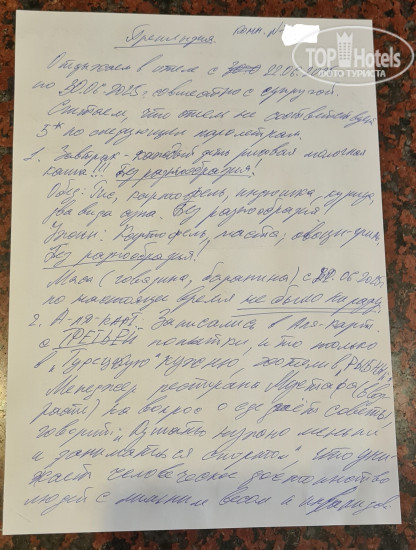 Претензия. комн. №
TOPHotels
ФОТО ТУРИСТА
Отдыхаем в отеле с 22.06.
по 30.06.2025г. совместно с супругой.
Считаем, что отель не соответствует
5* по следующим параметрам.
1. Завтрак - каждый день рисовая молочная
каша!!! Без разнообразия.
Обед: Рис, картофель, индюшка, курица,
два вида одна. Без разнообразия.
Ужин: Картофель, паста, овощи-гриль,
Без разнообразия!
Мяса (говядина, баранина) с .06.2025г
по настоящее время не было ни разу.
2. А-ля-карт. Записались в Аля-карт
с ТРЕТЬЕЙ попытки, и то только
в "Турецкую" кухню, хотели в рыбный.
Менеджер ресторана Мустафа (
) на вопрос о еде даёт советы,
говорит: "Кушать нужно меньше
и заниматься спортом", это уни-
жает человеческое достоинство
людей с лишним весом и инвалидов.